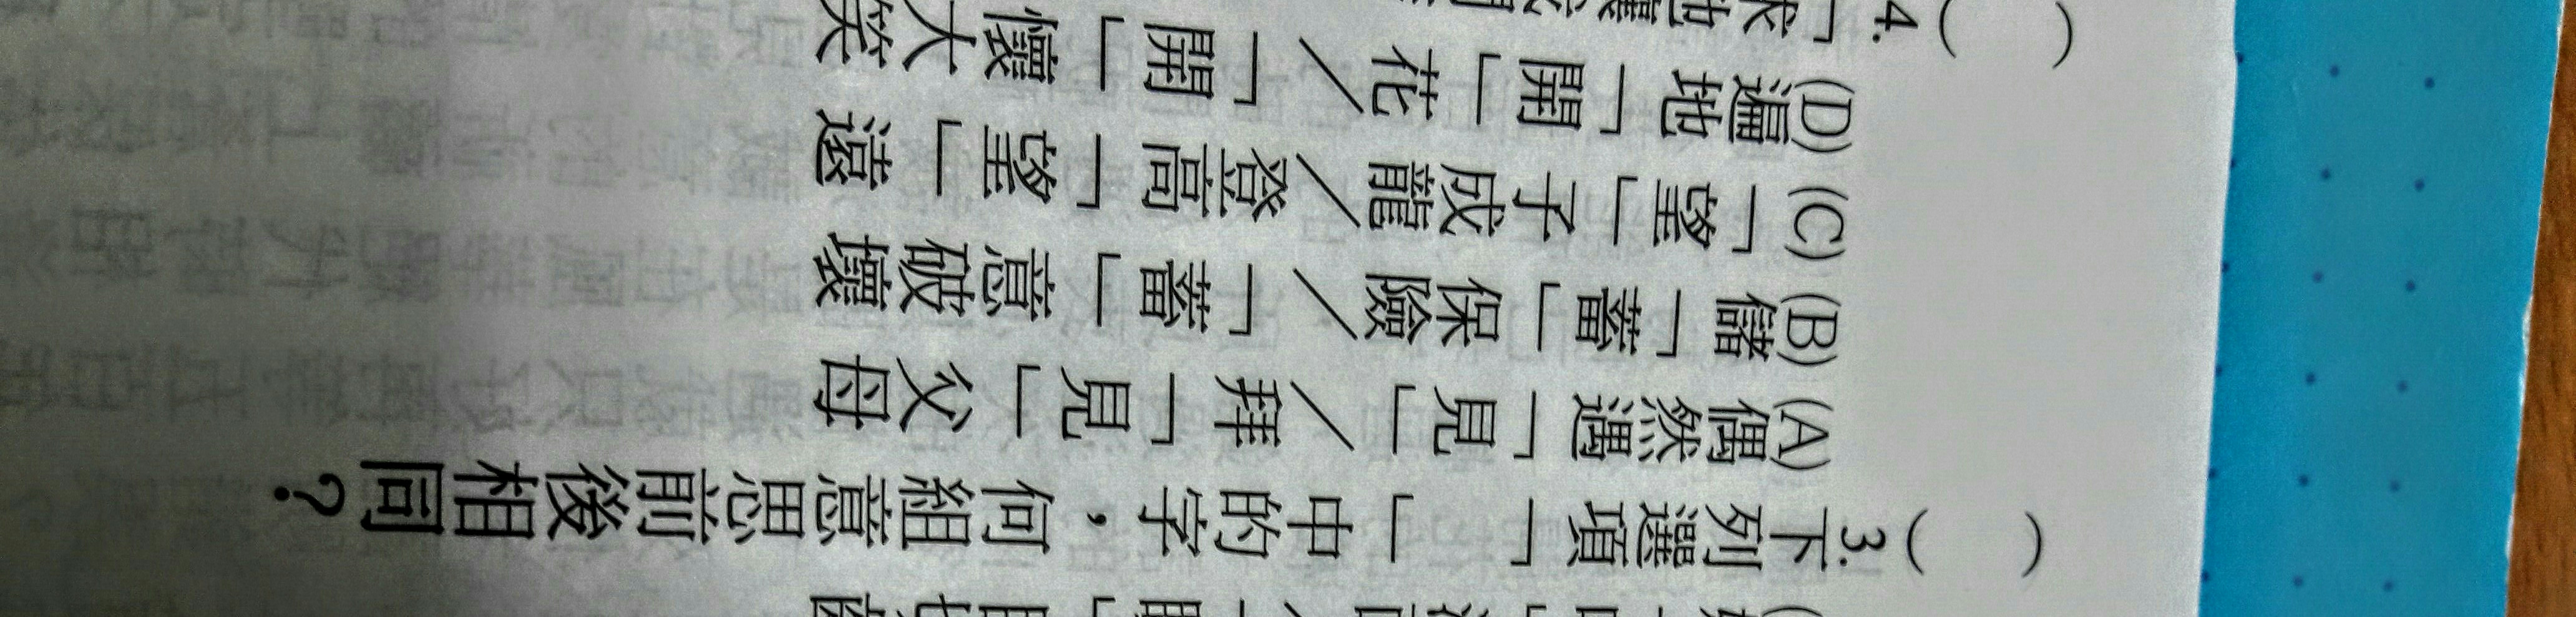 ( )3.下列選項「 」中的字，何組意思前後相同？
(A)偶然遇「見」／拜「見」父母
(B)儲「蓄」保險／「蓄」意破壞
(C)「望」子成龍／登高「望」遠
(D)遍地「開」花／「開」懷大笑
( )4.